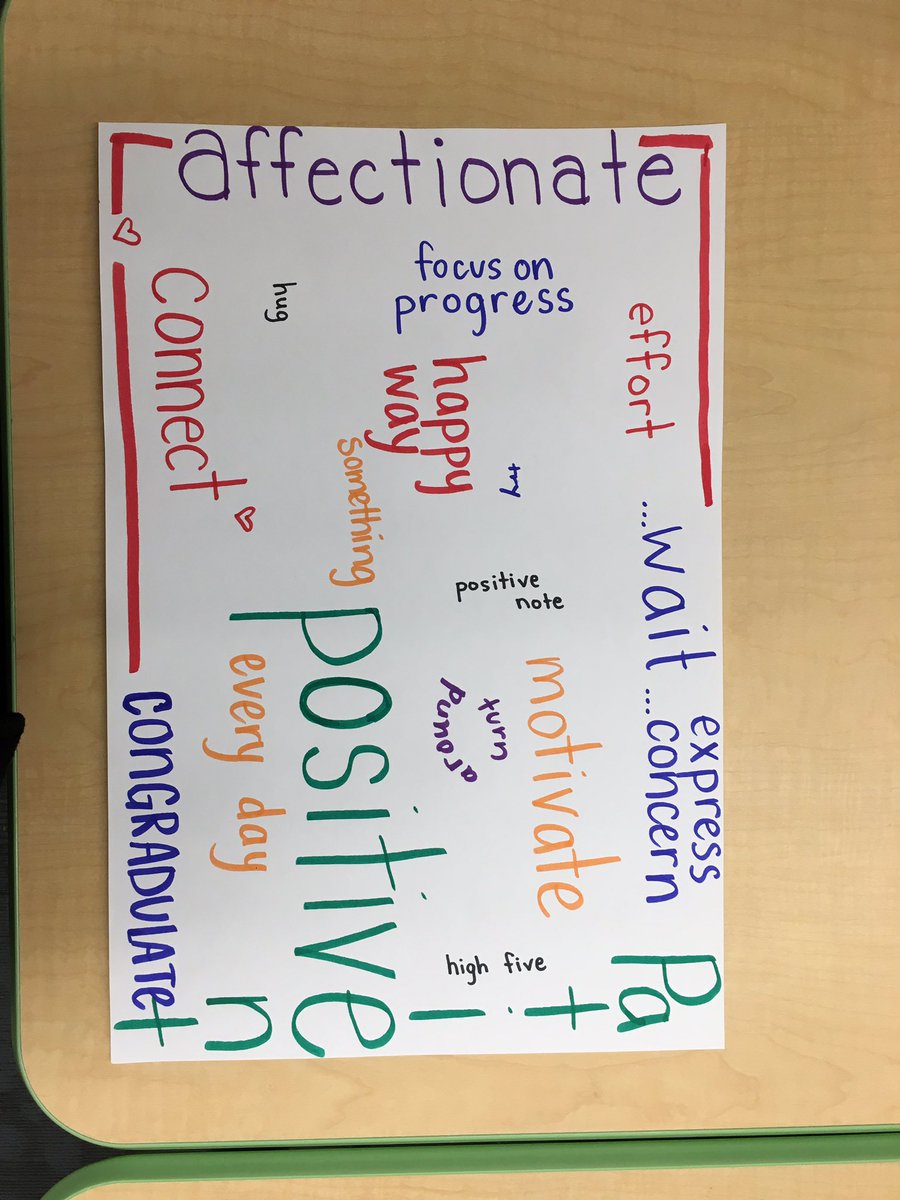 affectionate
focus on
progress
effort
hug
connect
happy
way
try
something
...wait...
positive
note
express
concern
motivate
turn
around
positive
every day
CONGRADULATe
high five
Patient